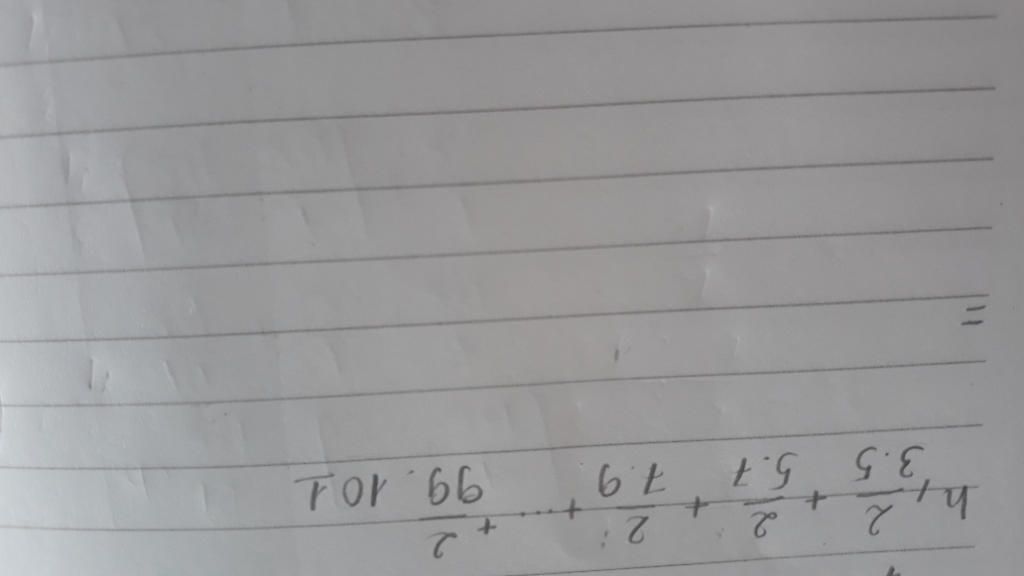 h, 2/3.5 + 2/5.7 + 2/7.9 + ... + 2/99.101
=